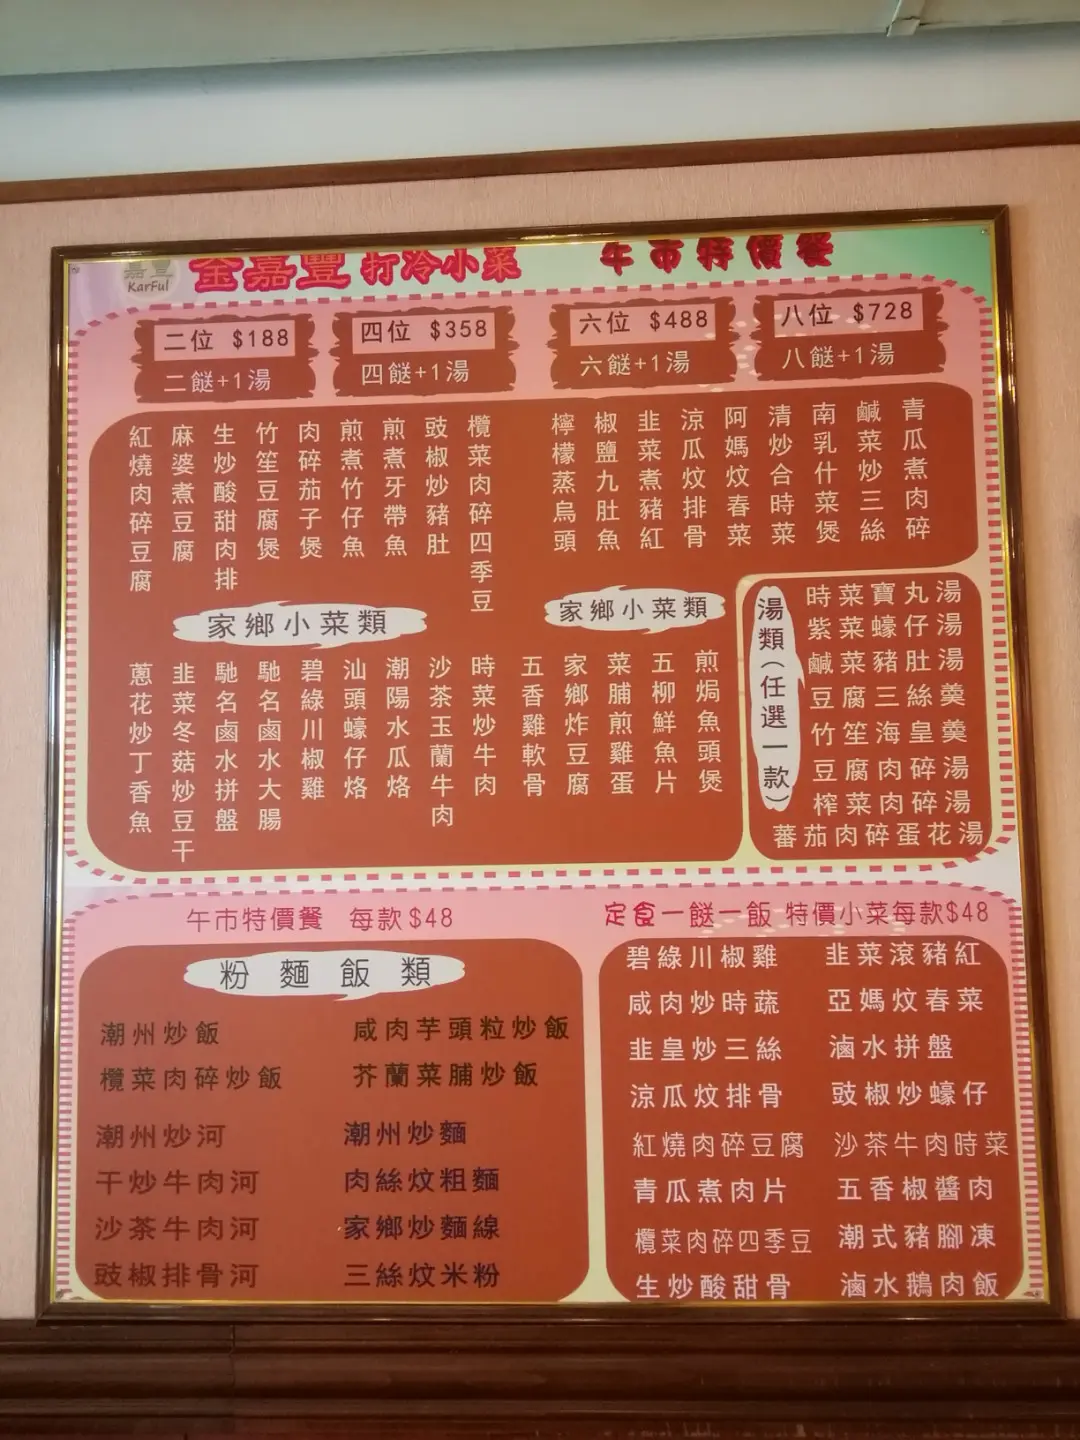 嘉豐
KarFul
金嘉豐 打冷小菜 午市特價餐
二位 $188
二餸+1湯
四位 $358
四餸+1湯
六位 $488
六餸+1湯
八位 $728
八餸+1湯
紅燒肉碎豆腐
麻婆煮豆腐
生炒酸甜肉排
竹笙豆腐煲
肉碎茄子煲
煎煮竹仔魚
煎煮牙帶魚
豉椒炒豬肚
欖菜肉碎四季豆
檸檬蒸烏頭
椒鹽九肚魚
韭菜煮豬紅
涼瓜炆排骨
阿媽炆春菜
清炒合時菜
南乳什菜煲
鹹菜炒三絲
青瓜煮肉碎
家鄉小菜類
家鄉小菜類
蔥花炒丁香魚
韭菜冬菇炒豆干
馳名鹵水拼盤
馳名鹵水大腸
碧綠川椒雞
汕頭蠔仔烙
潮陽水瓜烙
沙茶玉蘭牛肉
時菜炒牛肉
五香雞軟骨
家鄉炸豆腐
菜脯煎雞蛋
五柳鮮魚片
煎焗魚頭煲
湯類(任選一款)
時菜寶丸湯
紫菜蠔仔湯
鹹菜豬肚湯
豆腐三絲羹
竹笙海皇羹
豆腐肉碎湯
榨菜肉碎湯
蕃茄肉碎蛋花湯
午市特價餐 每款$48
粉麵飯類
潮州炒飯
咸肉芋頭粒炒飯
欖菜肉碎炒飯
芥蘭菜脯炒飯
潮州炒河
潮州炒麵
干炒牛肉河
肉絲炆粗麵
沙茶牛肉河
家鄉炒麵線
豉椒排骨河
三絲炆米粉
定食一餸一飯 特價小菜每款$48
碧綠川椒雞
韭菜滾豬紅
咸肉炒時蔬
亞媽炆春菜
韭皇炒三絲
滷水拼盤
涼瓜炆排骨
豉椒炒蠔仔
紅燒肉碎豆腐
沙茶牛肉時菜
青瓜煮肉片
五香椒醬肉
欖菜肉碎四季豆
潮式豬腳凍
生炒酸甜骨
滷水鵝肉飯